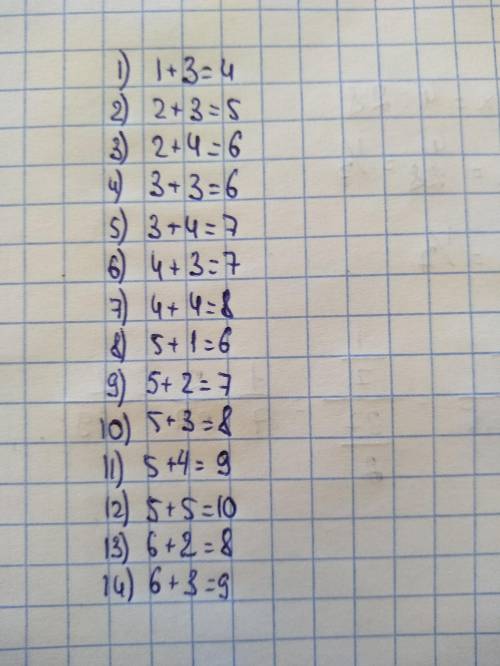 1) 1+3=4
2) 2+3=5
3) 2+4=6
4) 3+3=6
5) 3+4=7
6) 4+3=7
7) 4+4=8
8) 5+1=6
9) 5+2=7
10) 5+3=8
11) 5+4=9
12) 5+5=10
13) 6+2=8
14) 6+3=9